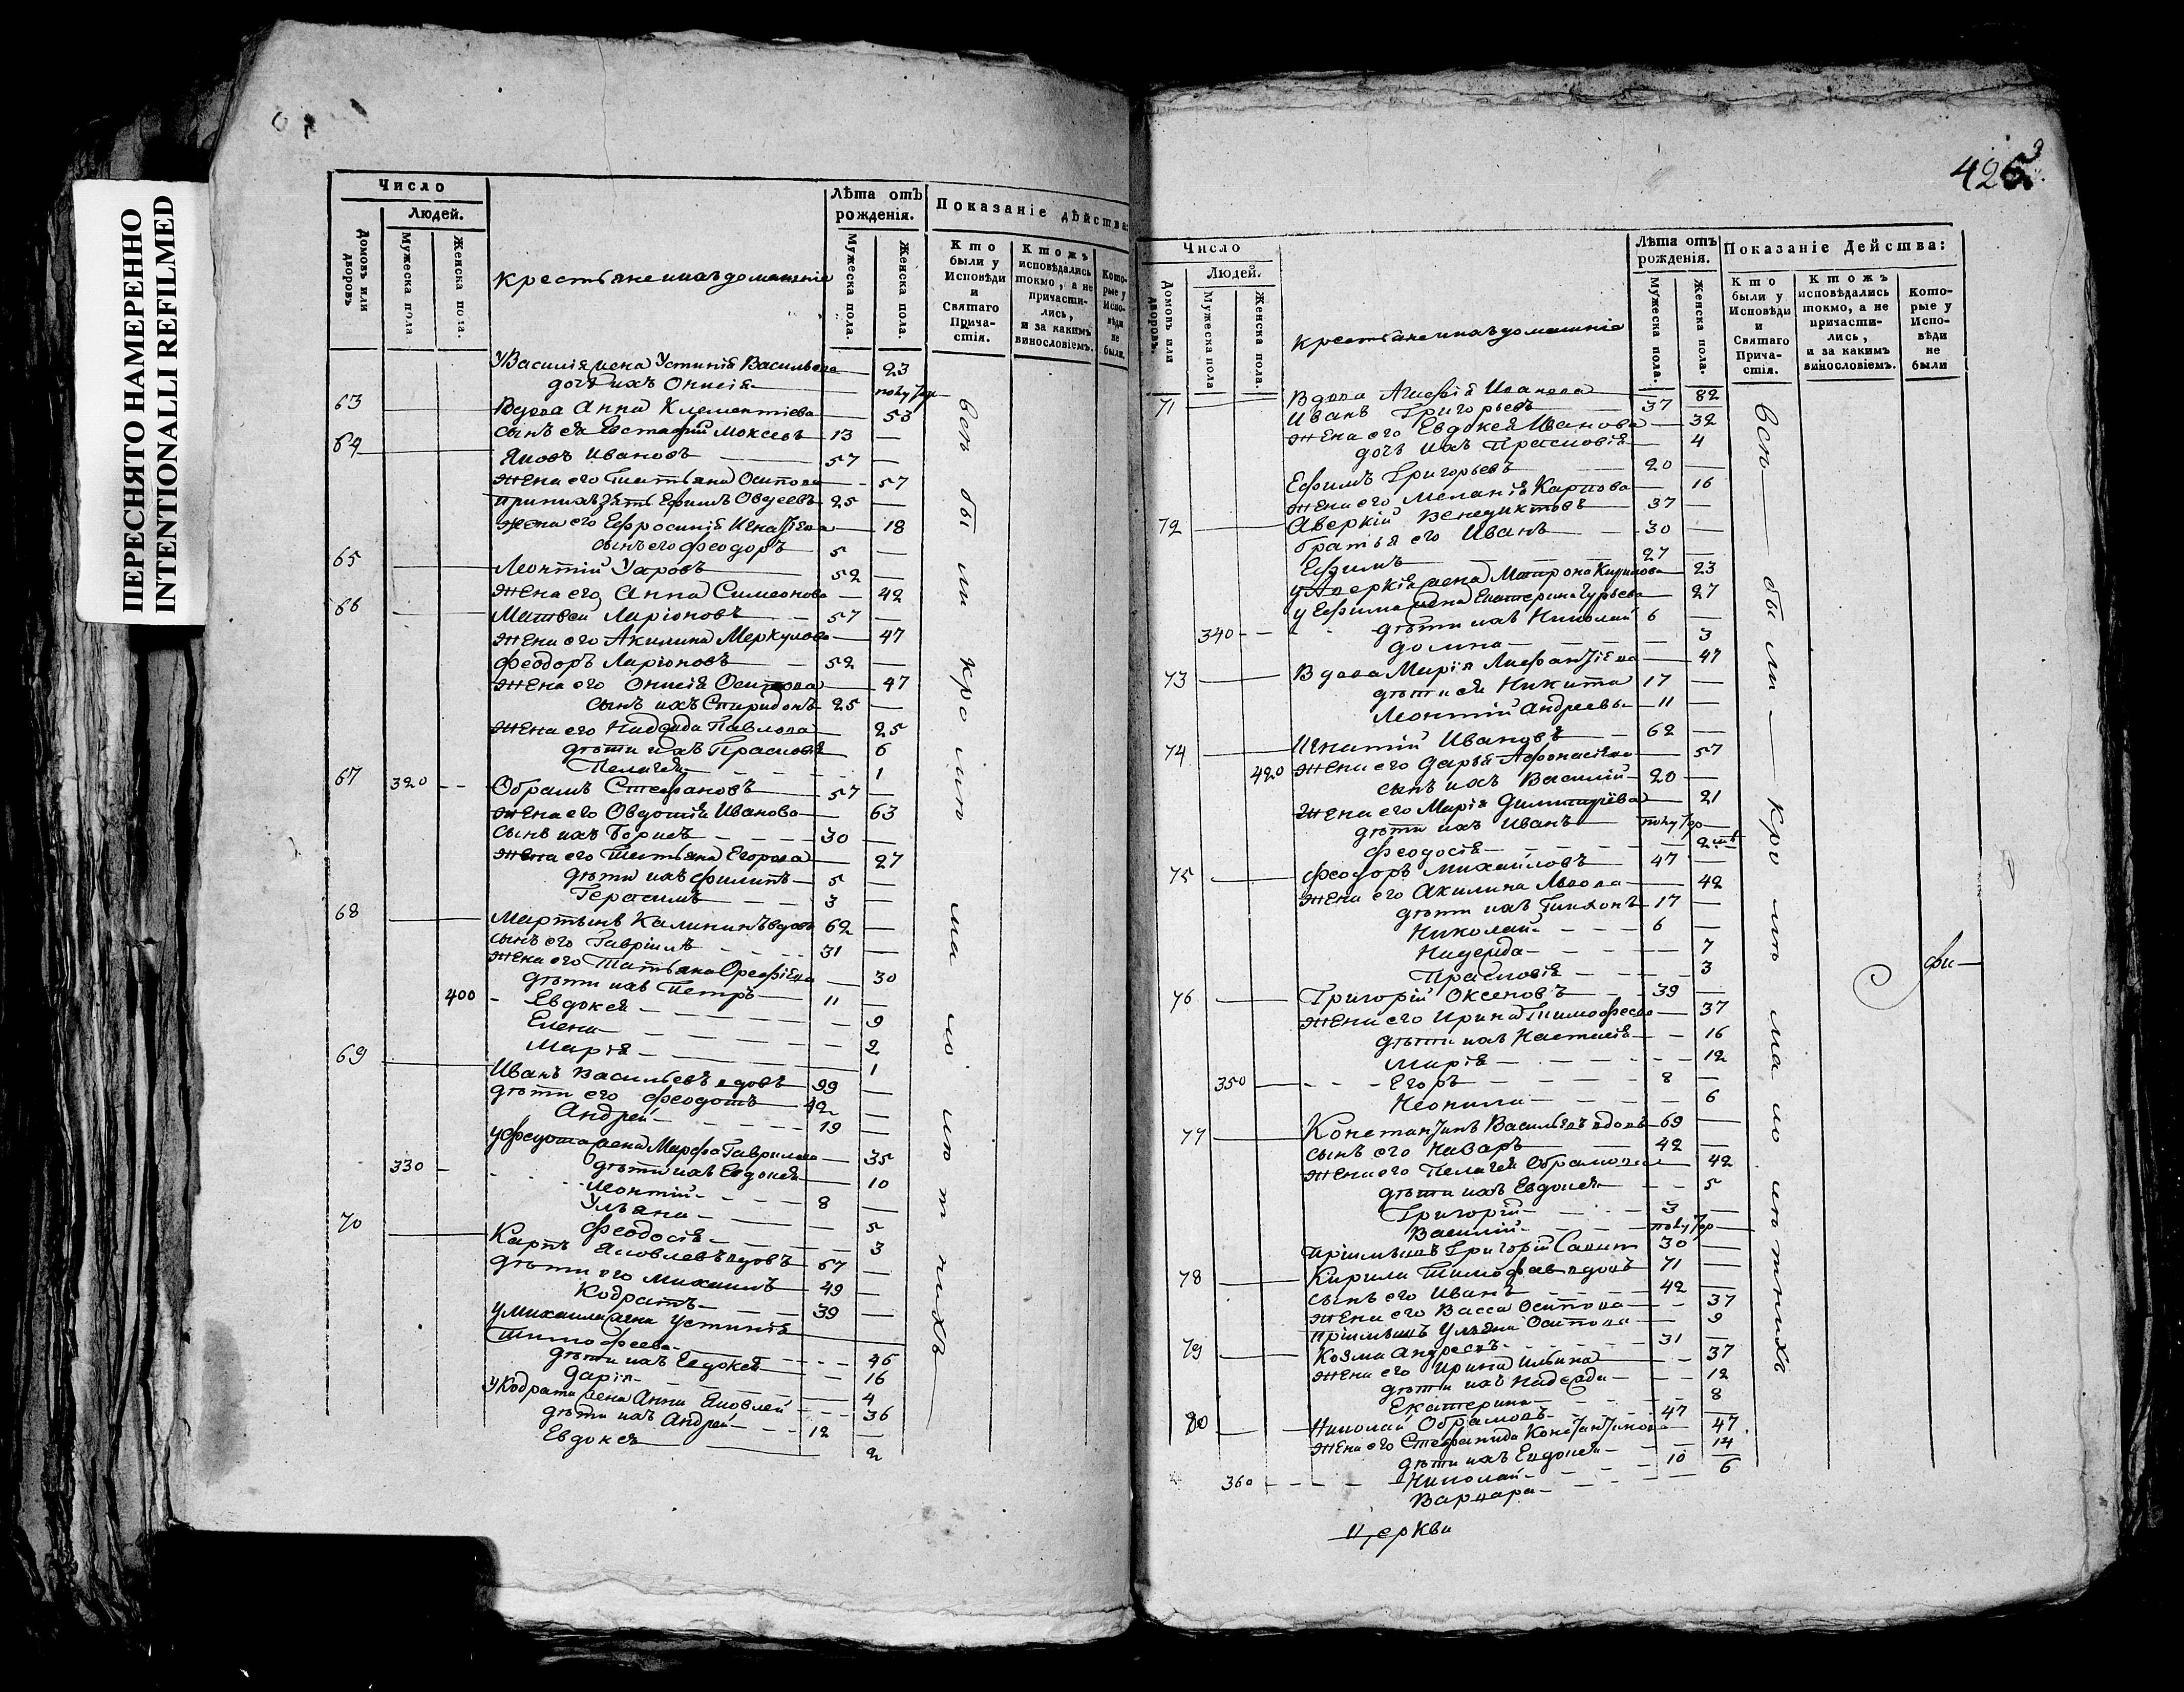 ПЕРЕСНЯТО НАМЕРЕННО
INTENTIONALLI REFILMED
Число
Людей.
Домовъ или дворовъ
Мужеска пола.
Женска пола.
крестьяне ихъ домашнія
Лѣта отъ рожденія.
Мужеска пола.
Женска пола.
Показаніе дѣйства:
Кто были у Исповѣди и Святаго Прича-стія.
Ктожъ исповѣдались токмо, а не причасти-лись, и за какимъ винословіемъ.
Кото-рые у Испо-вѣди не были.
У Василія жена Устинія Васильева 23
дочь ихъ Онисія полутор
63 Вдова Анна Клементіева 53
сынъ ея Евстафій Моксеевъ 13
64 Яковъ Ивановъ 57
жена его Татьяна Осипова 57
зять Ефимъ Овдеевъ 25
жена его Ефросинія Игнатіева 18
сынъ его Феодоръ 5
65 Леонтій Уаровъ 52
жена его Анна Симеонова 42
66 Матвей Ларіоновъ 57
жена его Акилина Меркулова 47
Феодоръ Ларіоновъ 52
жена его Онисія Осипова 47
сынъ ихъ Спиридонъ 25
жена его Надежда Павлова 25
дѣти ихъ Прасковія 6
Пелагея 1
67 320 Обрамъ Стефановъ 57
жена его Овдотія Иванова 63
сынъ ихъ Борисъ 30
жена его Татьяна Егорова 27
дѣти ихъ Филипъ 5
Герасимъ 3
68 Мартынъ Калининъ вдовъ 62
сынъ его Гавріилъ 31
жена его Татьяна Орефіева 30
дѣти ихъ Петръ 11
400 Евдокея 9
Елена 2
Марія 1
69 Иванъ Васильевъ вдовъ 99
дѣти его Феодотъ 42
Андрей 19
у Федота жена Марфа Гаврилова 35
дѣти ихъ Евдокея 10
330 Леонтій 8
Ульяна 5
Феодосія 3
70 Карпъ Яковлевъ вдовъ 67
дѣти его Михаилъ 49
Кодратъ 39
у Михаила жена Устинія
Тимофеева 46
дѣти ихъ Евдокея 16
Дарія 4
у Кодрата жена Анна Яковлей 36
дѣти ихъ Андрей 12
Евдокея 2
всѣ были кромѣ малолѣтнихъ
426
9
Число
Людей.
Домовъ или дворовъ.
Мужеска пола
Женска пола.
крестьяне ихъ домашнія
Лѣта отъ рожденія.
Мужеска пола.
Женска пола.
Показаніе Действа:
Кто были у Исповѣди и Святаго Прича-стія.
Ктожъ исповѣдались токмо, а не причасти-лись, и за какимъ винословіемъ.
Кото-рые у Испо-вѣди не были
71 Вдова Агафія Иванова 82
Иванъ Григорьевъ 37
жена его Евдокея Иванова 32
дочь ихъ Прасковія 4
Ефимъ Григорьевъ 20
жена его Меланія Карпова 16
72 Аверкій Венедиктовъ 37
братья его Иванъ 30
Ефимъ 27
у Аверкія жена Матрона Кирилова 23
у Ефима жена Екатерина Гурьева 27
340 дѣти ихъ Николай 6
Домна 3
73 Вдова Марія 47
дѣти ея Никита 17
Леонтій Андреевы 11
74 Игнатій Ивановъ 62
420 жена его Дарья Афонасіева 57
сынъ ихъ Василій 20
жена его Марія Димитріева 21
дѣти ихъ Иванъ полутор
Феодосія 2
75 Феодоръ Михайловъ 47
жена его Акилина Львова 42
дѣти ихъ Тихонъ 17
Николай 6
Надежда 7
Прасковія 3
76 Григорій Оксеновъ 39
жена его Ирина Тимофеева 37
дѣти ихъ Настасія 16
Марія 12
350 Егоръ 8
Неонила 6
77 Константинъ Васильевъ вдовъ 69
сынъ его Назаръ 42
жена его Пелагея Обрамова 42
дѣти ихъ Евдокея 5
Григорій 3
Василій полутор
пріимышъ Григорій 30
78 Кирила Тимофеевъ вдовъ 71
сынъ его Иванъ 42
жена его Васса Осипова 37
пріимышъ Ульяна Осипова 9
79 Козма Андреевъ 31
жена его Ирина Ильина 37
дѣти ихъ Надежда 12
Екатерина 8
80 Николай Обрамовъ 47
жена его Стефанида Константинова 47
дѣти ихъ Евдокея 14
360 Николай 10
Варвара 6
всѣ были кромѣ малолѣтнихъ
Церкви